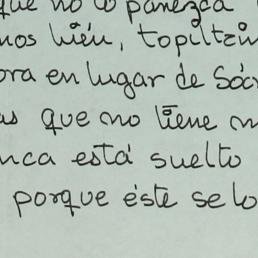 que no lo parezca
nos bién, topiltzin
ora en lugar de Sóc
as que no tiene m
nca está suelto
porque éste se lo